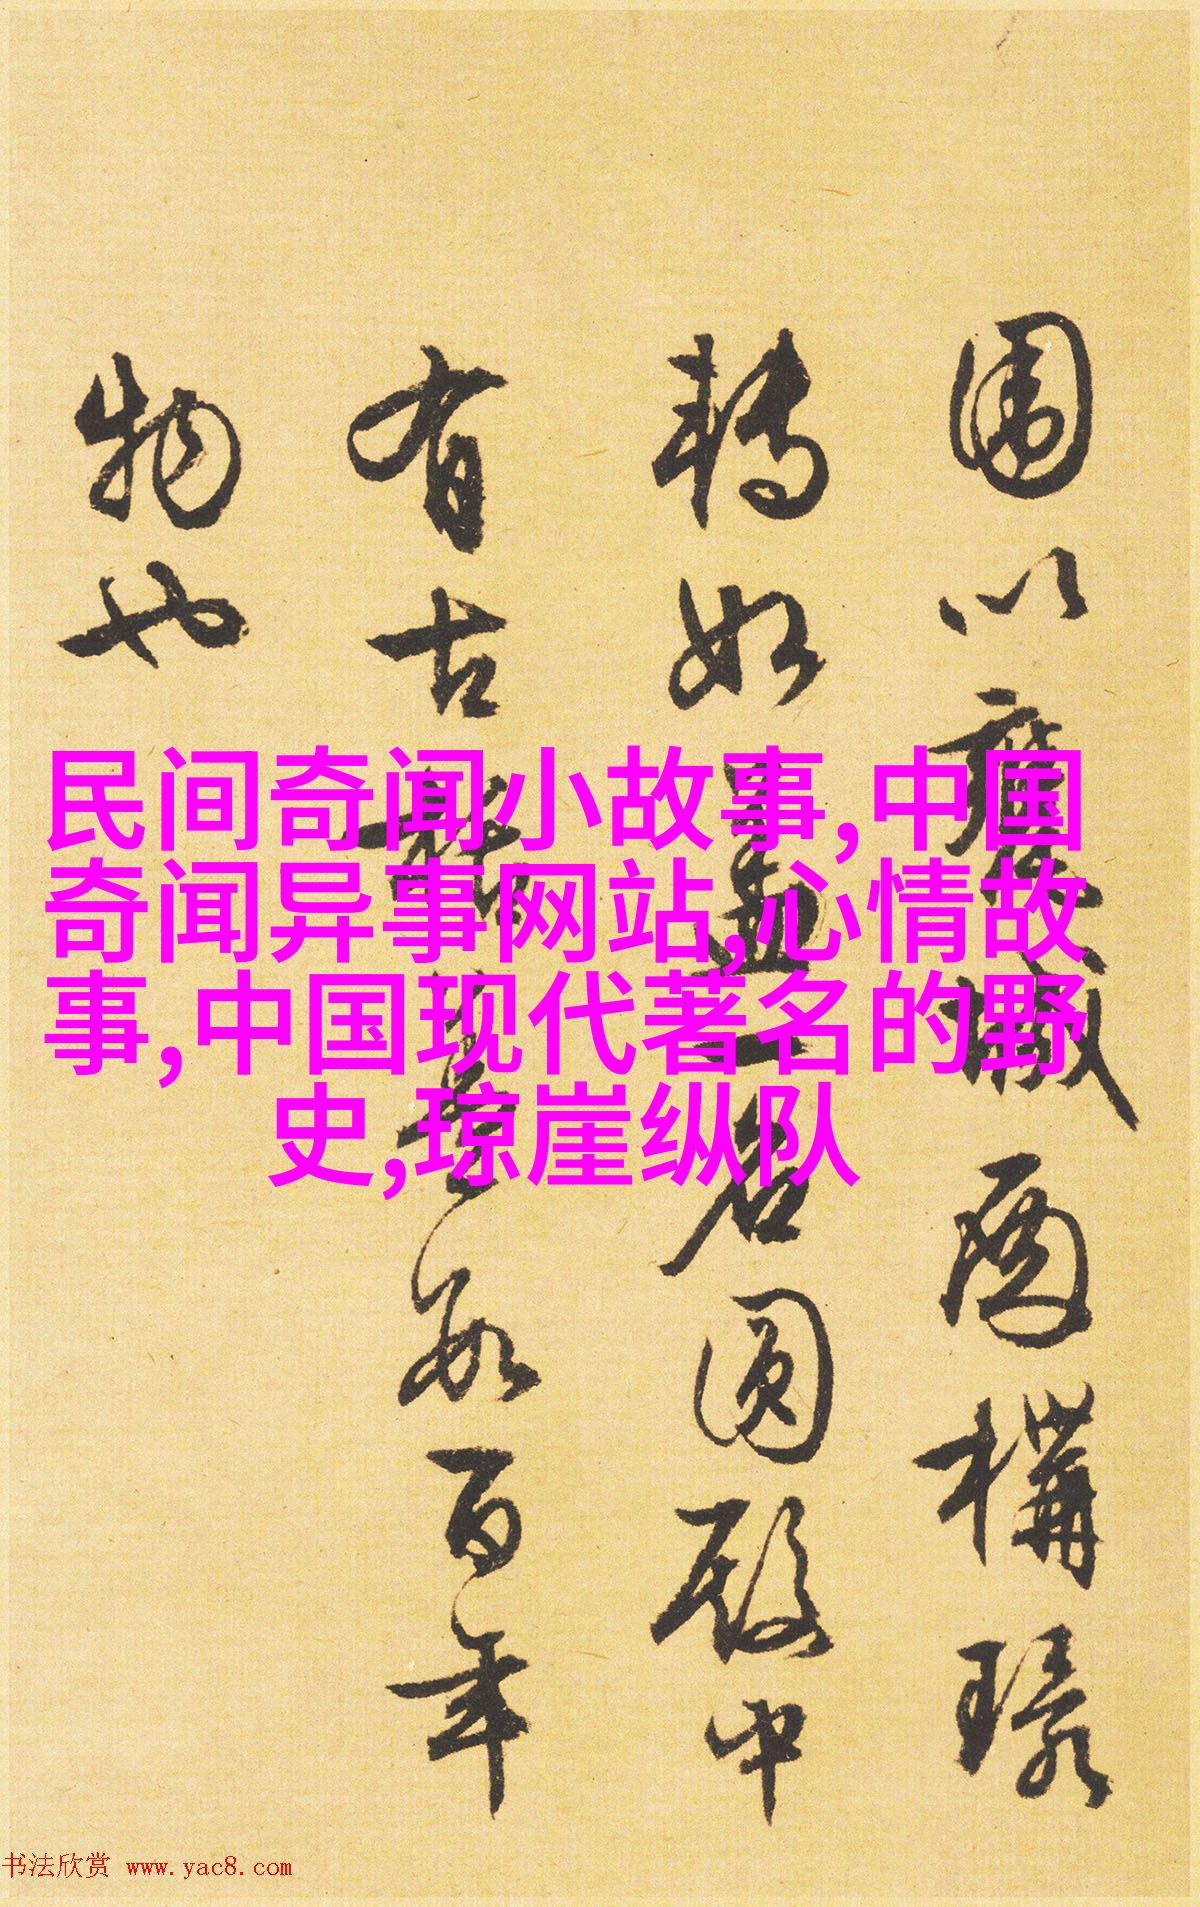 围以甕城 两構环
转如盖 名圆殿中
有古 数百年
物也
民间奇闻小故事,中国
奇闻异事网站,心情故
事,中国现代著名的野
史,琼崖纵队
书法欣赏 www.yac8.com